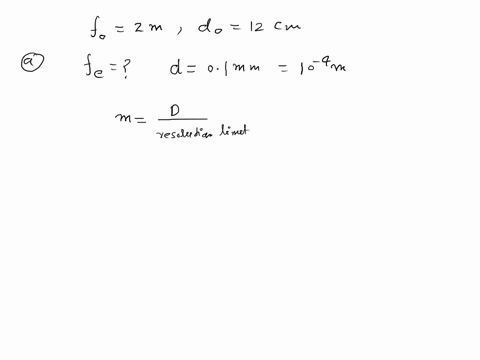 f₀ = 2 m , d₀ = 12 cm
ⓐ fe = ? d = 0.1 mm = 10⁻⁴ m
m = D / resolution limit